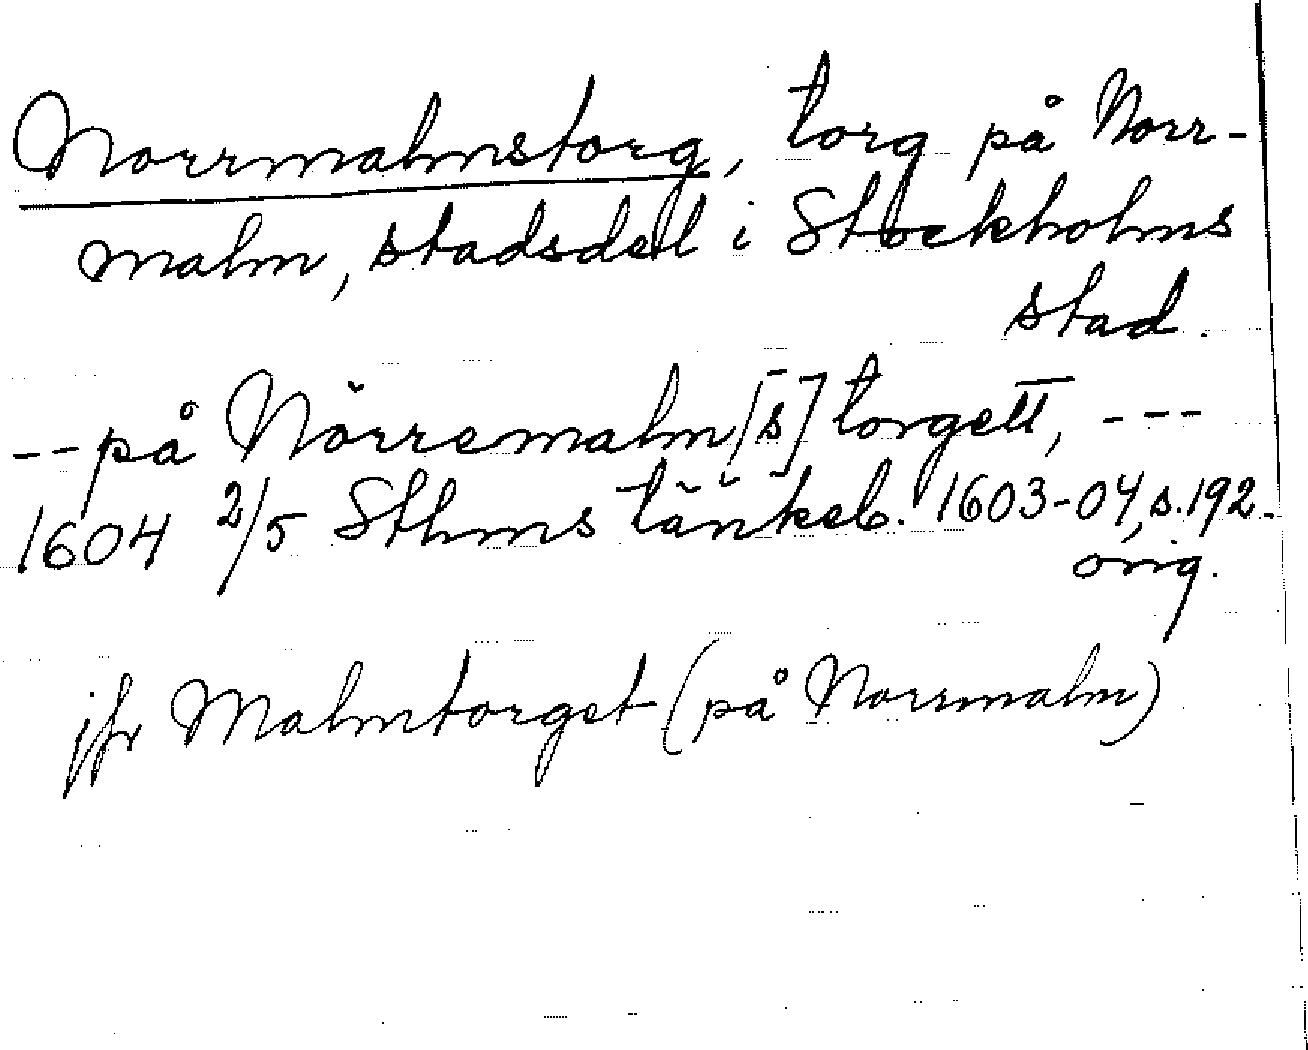 Norrmalmstorg, torg på Norr-
malm, stadsdel i Stockholms
stad.
-- på Nörremalm[s]torgett, ---
1604 2/5 Sthms tänkeb. 1603-04, s. 192.
orig.
jfr Malmtorget (på Norrmalm)